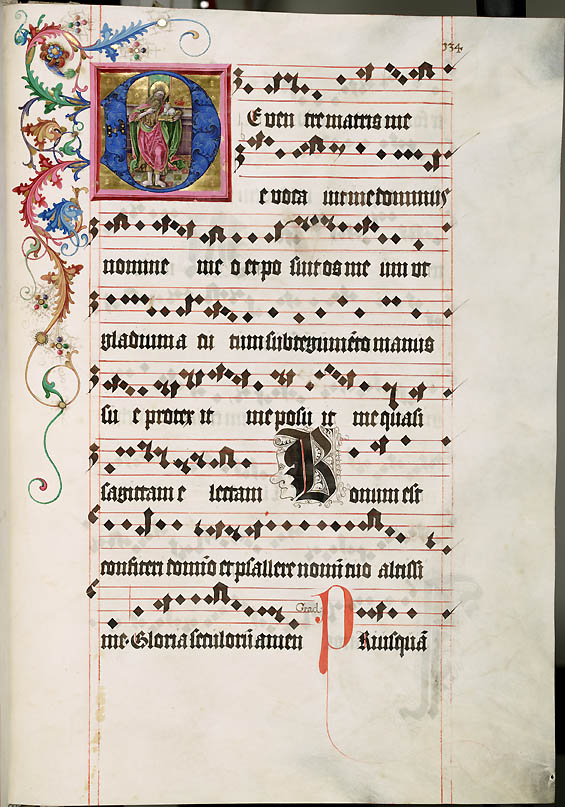 134
DE ven tre matris me
e voca vit me dominus
nomine me o et po suit os me um ut
gladium a cu tum sub tegumēto manus
su e protex it me posu it me quasi
sagittam e lectam Bonum est
confiteri domīo et psallere nomī tuo altissi
me Gloria seculorū amen Grad. PRiusquā